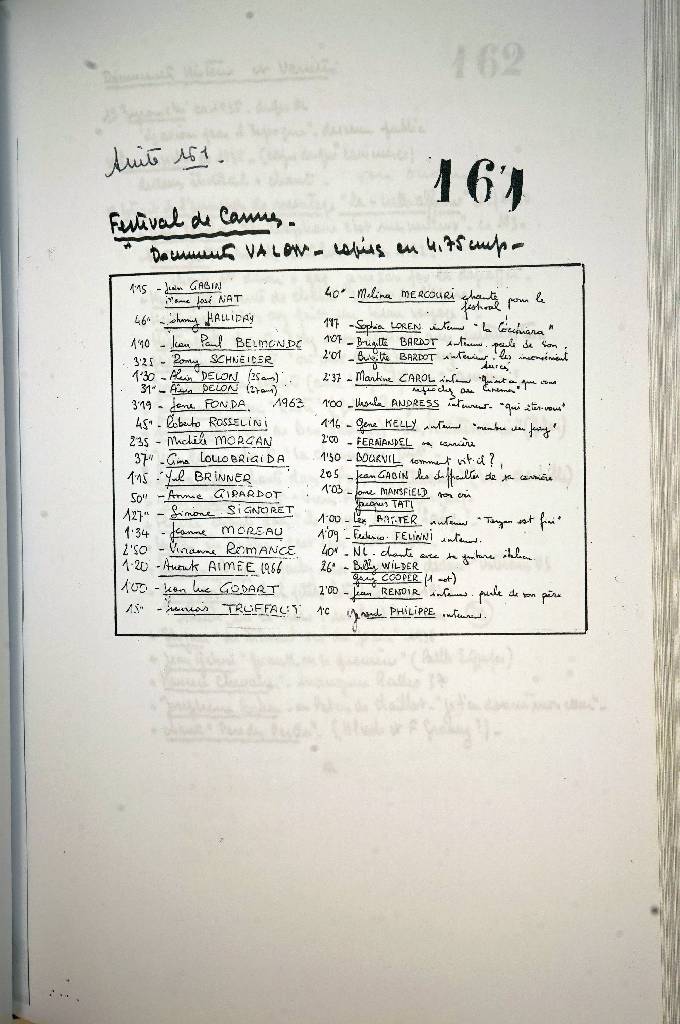 Suite 161.
161
Festival de Cannes.
Documents VALOIR - copies en 4.75 cm/s -
1'15 - Jean GABIN
José NAT
46" - Johnny HALLIDAY
1'10 - Jean Paul BELMONDO
3'25 - Romy SCHNEIDER
1'30 - Alain DELON (25 ans)
31" - Alain DELON (27 ans)
3'19 - Jane FONDA. 1963
45" - Roberto ROSSELINI
2'35 - Michèle MORGAN
37" - Gina LOLLOBRIGIDA
1'15 - Yul BRINNER
50" - Annie GIRARDOT
1'27" - Simone SIGNORET
1'34 - Jeanne MOREAU
2'50 - Viviane ROMANCE
1'20 - Anouk AIMEE 1966
1'00 - Jean Luc GODART
15" - Francois TRUFFAUT
40" - Melina MERCOURI chante pour le
festival
1'17 - Sophia LOREN interview "la Ciociara"
1'07 - Brigitte BARDOT interview. parle de son
2'01 - Brigitte BARDOT interview. les inconvénients
2'37 - Martine CAROL interview "Qu'est ce que vous
reprochez au cinema"
1'00 - Ursula ANDRESS interview - "qui êtes-vous"
1'16 - Gene KELLY interview "membre du jury"
2'00 - FERNANDEL sa carrière
1'30 - BOURVIL comment vit-il ?
2'05 - Jean GABIN les difficultés de sa carrière
1'03 - Jane MANSFIELD son cri
Jacques TATI
1'00 - Lex BARKER interview "Tarzan est fini"
1'09 - Federico FELINNI interview.
40" - N.I. chante avec sa guitare italien
26" - Billy WILDER
Gary COOPER (1 mot)
2'00 - Jean RENOIR interview. parle de son père
Gerard PHILIPPE interview.